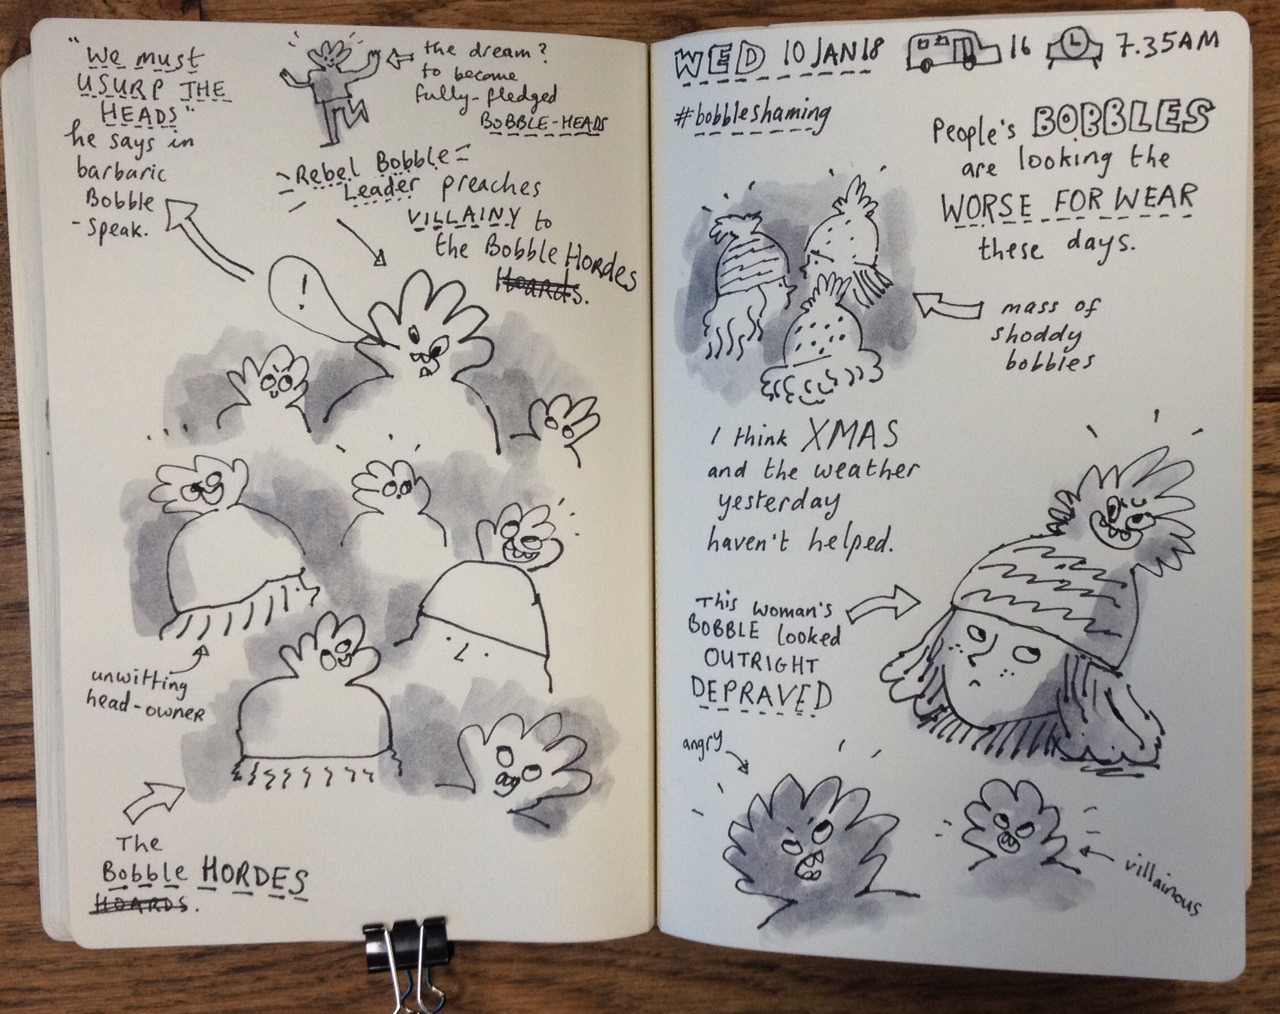 "We must
USURP THE
HEADS"
he says in
barbaric
Bobble
-speak.
the dream?
to become
fully-fledged
BOBBLE-HEADS
Rebel Bobble
Leader preaches
VILLAINY to
the Bobble Hordes
Hoards.
!
unwitting
head-owner
The
Bobble HORDES
HOARDS.
WED 10 JAN 18 16 7.35AM
#bobbleshaming
People's BOBBLES
are looking the
WORSE FOR WEAR
these days.
mass of
shoddy
bobbles
I think XMAS
and the weather
yesterday
haven't helped.
This woman's
BOBBLE looked
OUTRIGHT
DEPRAVED
angry
villainous